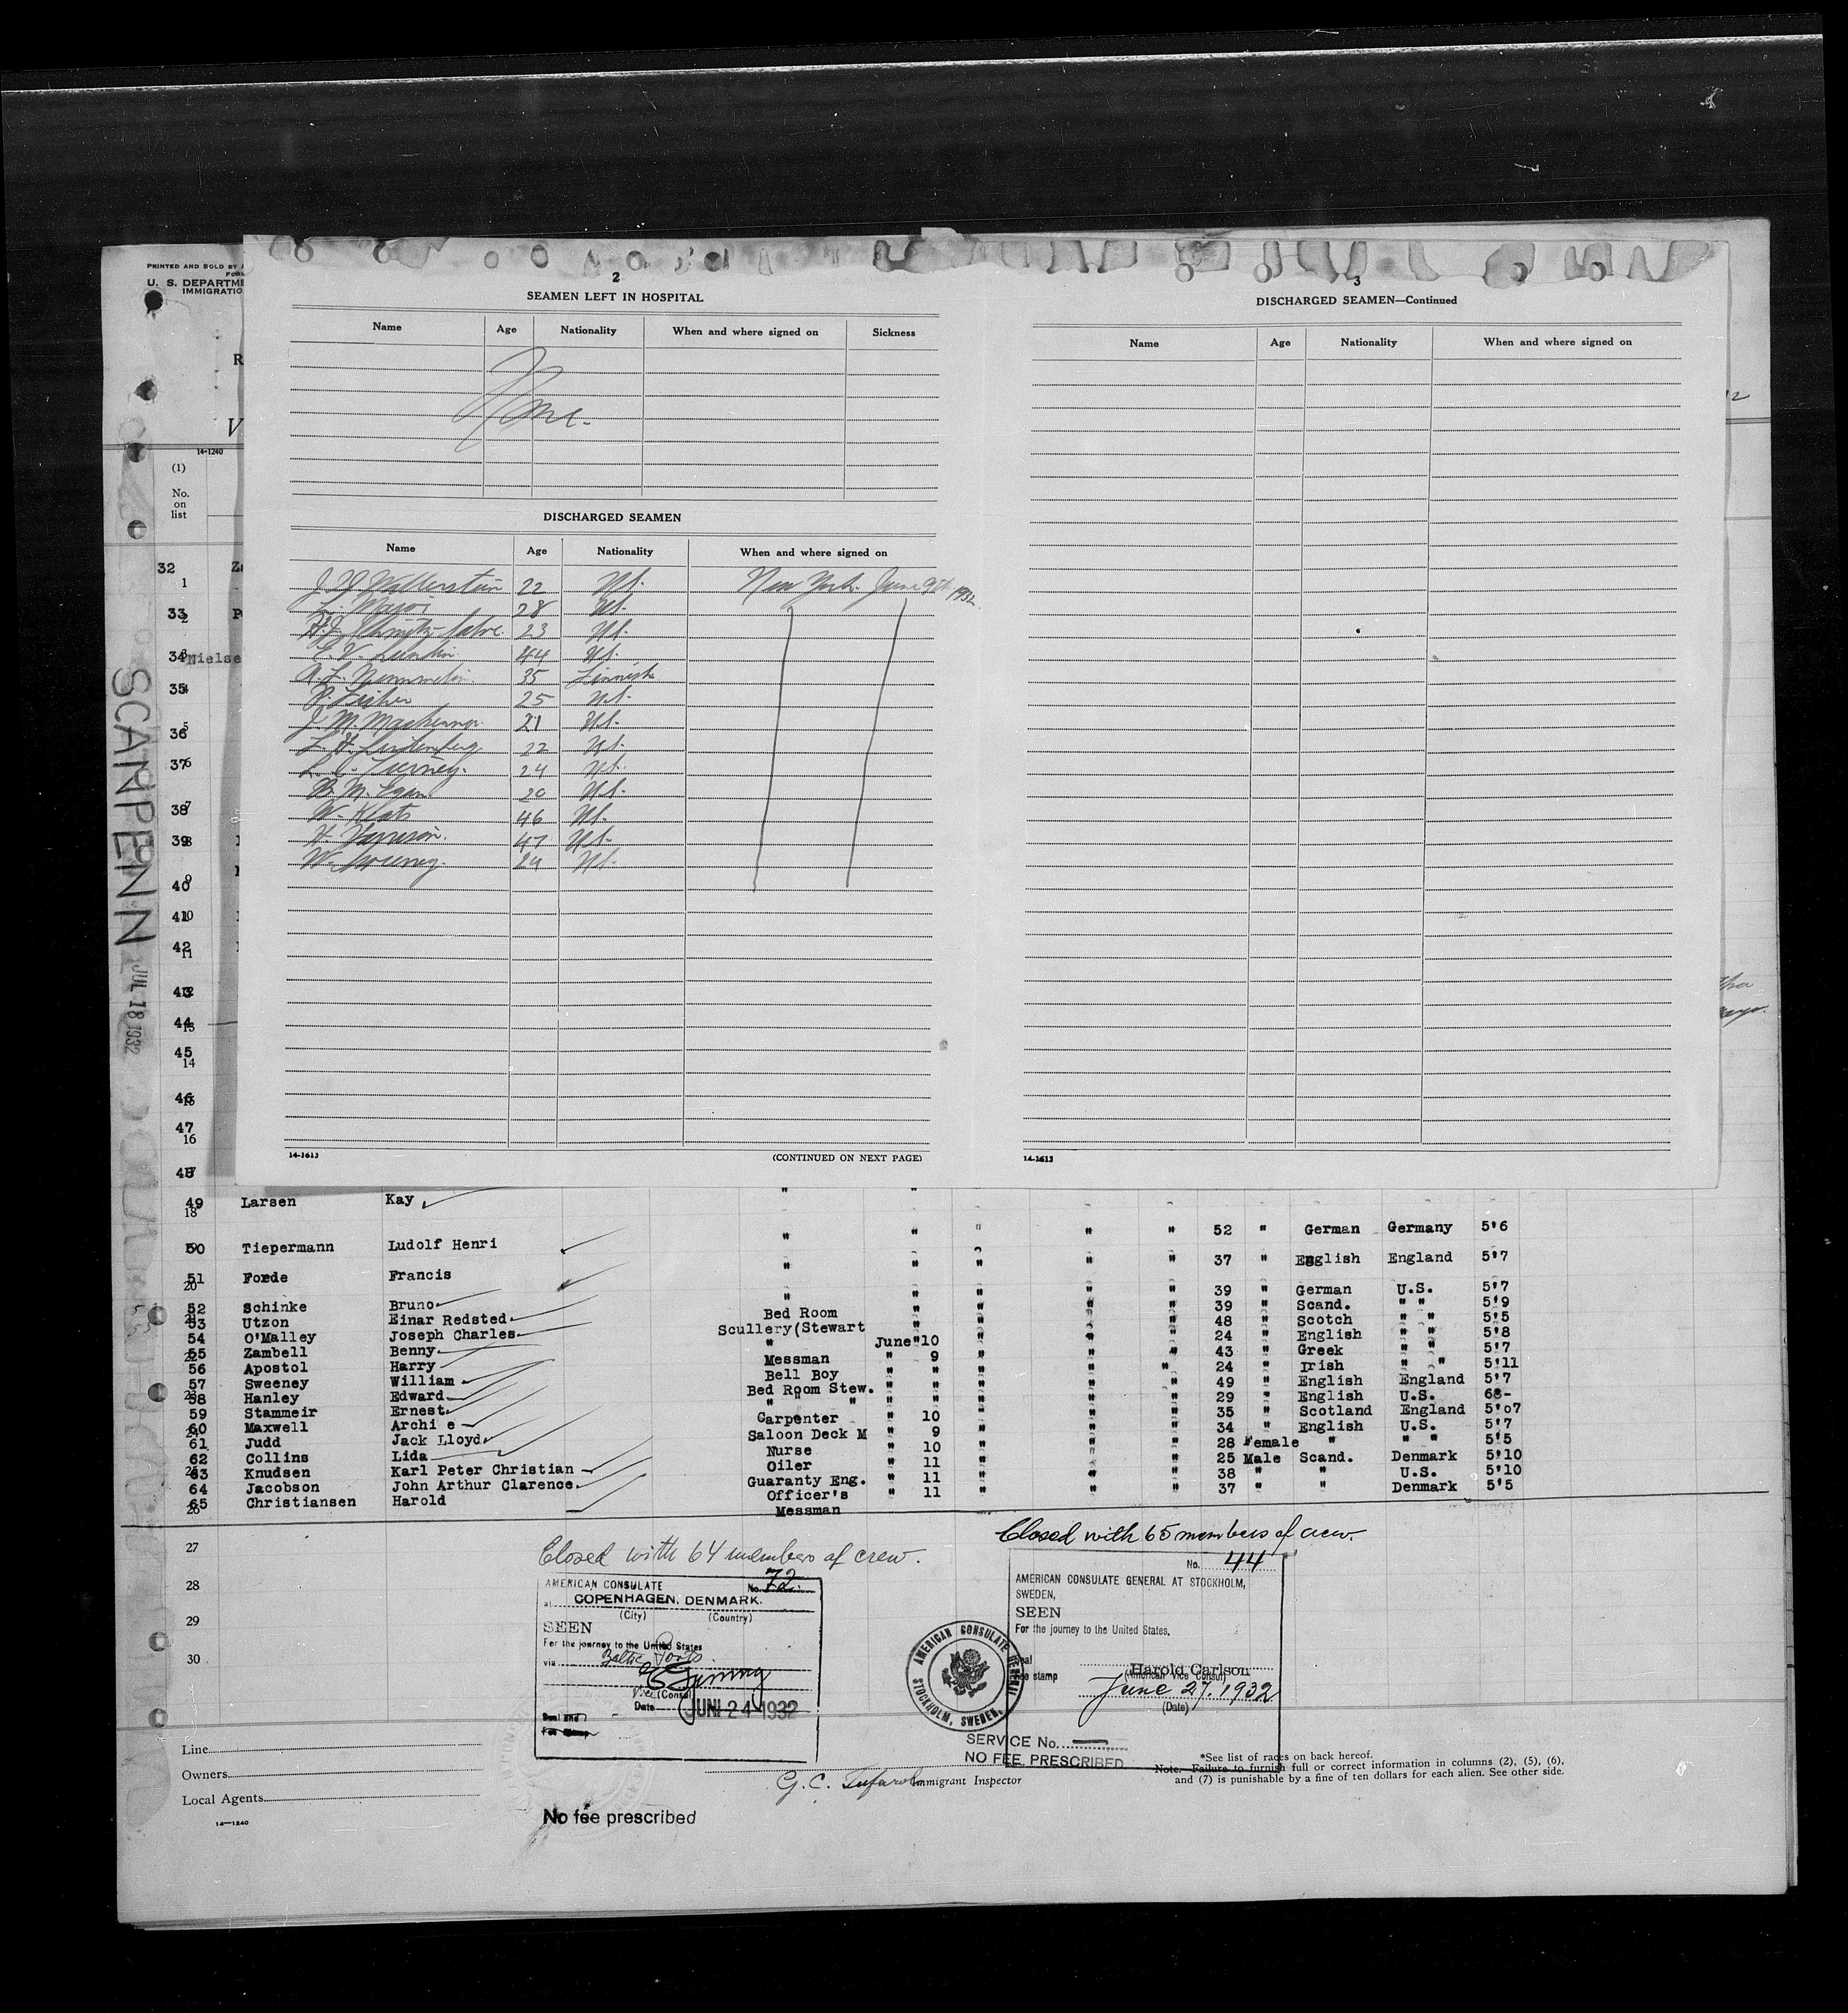 PRINTED AND SOLD BY
U. S. DEPARTME
IMMIGRATIO
14-1240
(1)
No.
on
list
SCANPENN
JUL 18 1932
2
SEAMEN LEFT IN HOSPITAL
Name Age Nationality When and where signed on Sickness
None.
DISCHARGED SEAMEN
Name Age Nationality When and where signed on
22 New York. June 9th 1932
L. Major 28
23
E. V. Lundin 44
35 Finnish
25
J. M. 21
22
L. C. Tierney. 24
B. M. Egan 20
W. 46
H. 47
W. 24
14-1613
(CONTINUED ON NEXT PAGE)
3
DISCHARGED SEAMEN—Continued
Name Age Nationality When and where signed on
14-1613
32
1
33
2
34 Nielse
35
5
36
37
6
38
7
39
8
40
9
41
10
42
11
43
12
44
45
14
46
15
47
16
48
49 Larsen Kay " "
18
50 Tiepermann Ludolf Henri " " " " " 52 " German Germany 5'6
51 Forde Francis " " " " " 37 " English England 5'7
20
52 Schinke Bruno " " " " " 39 " German U.S. 5'7
53 Utzon Einar Redsted Bed Room " " " " 39 " Scand. " " 5'9
54 O'Malley Joseph Charles Scullery(Stewart " " " " 48 " Scotch " " 5'5
55 Zambell Benny " June"10 " " " 24 " English " " 5'8
56 Apostol Harry Messman " 9 " " " 43 " Greek " " 5'7
57 Sweeney William Bell Boy " " " " " 24 " Irish " " 5'11
58 Hanley Edward Bed Room Stew. " " " " " 49 " English England 5'7
59 Stammeir Ernest " " " " " " " 29 " English U.S. 68-
60 Maxwell Archi e Carpenter " 10 " " " 35 " Scotland England 5'07
61 Judd Jack Lloyd Saloon Deck M " 9 " " " 34 " English U.S. 5'7
62 Collins Lida Nurse " 10 " " " 28 Female " " " 5'5
63 Knudsen Karl Peter Christian Oiler " 11 " " " 25 Male Scand. Denmark 5'10
64 Jacobson John Arthur Clarence. Guaranty Eng. " 11 " " " 38 " " U.S. 5'10
65 Christiansen Harold Officer's " 11 " " " 37 " " Denmark 5'5
Messman
26
27
28
29
30
Closed with 64 members of crew.
AMERICAN CONSULATE No. 72.
at COPENHAGEN, DENMARK.
(City) (Country)
SEEN
For the journey to the United States
via Baltic Ports.
Vice (Consul)
Date JUNI 24 1932
Seal and
Fee Stamp
No fee prescribed
Closed with 65 members of crew.
No. 44
AMERICAN CONSULATE GENERAL AT STOCKHOLM,
SWEDEN,
SEEN
For the journey to the United States.
Seal
Fee stamp
Harold Carlson
(American Vice Consul)
June 27. 1932
(Date)
AMERICAN CONSULATE GENERAL STOCKHOLM, SWEDEN.
SERVICE No.
NO FEE PRESCRIBED
G. C. Immigrant Inspector
Line
Owners
Local Agents
14—1240
*See list of races on back hereof.
Note.—Failure to furnish full or correct information in columns (2), (5), (6),
and (7) is punishable by a fine of ten dollars for each alien. See other side.